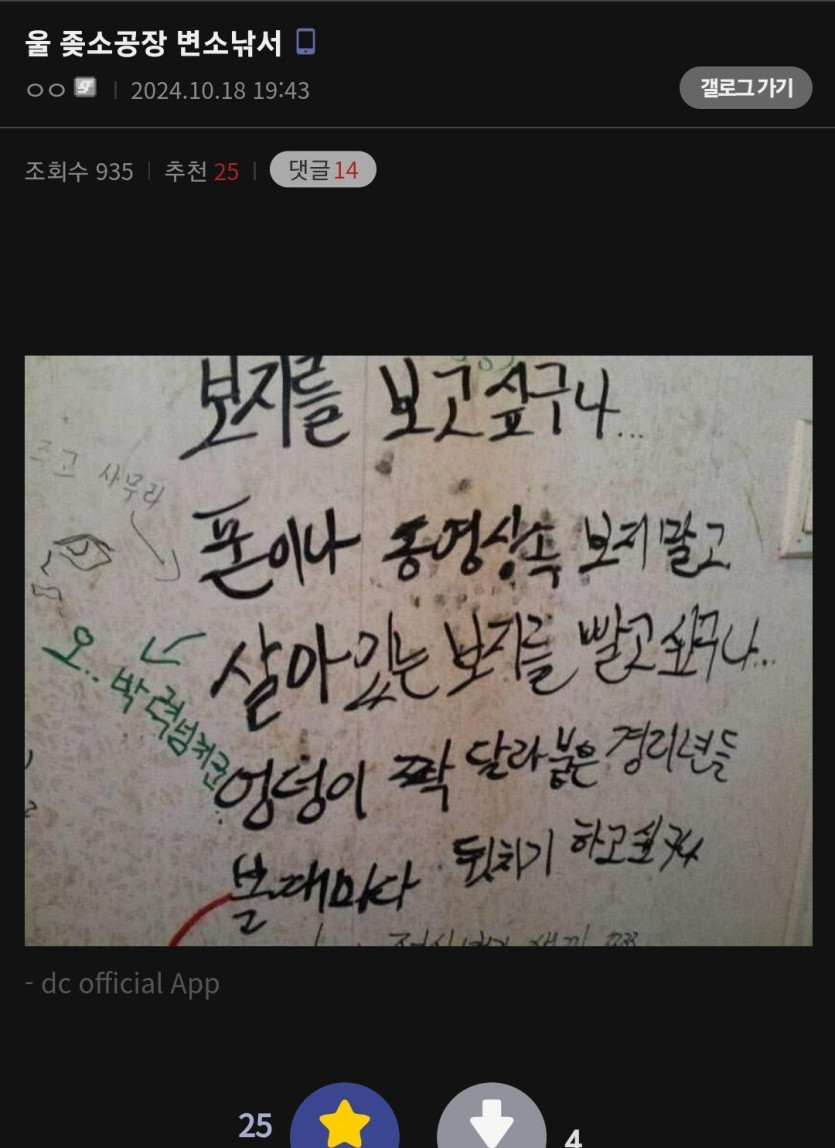 울 좆소공장 변소낚서
ㅇㅇ | 2024.10.18 19:43
갤로그 가기
조회수 935 | 추천 25 | 댓글 14
보지를 보고싶구나...
폰이나 동영상속 보지말고
살아있는 보지를 빨고싶구나...
엉덩이 짝 달라붙은 경리년들
볼때마다 뒷치기 하고싶구나
오.. 박력넘쳐
- dc official App
25
4